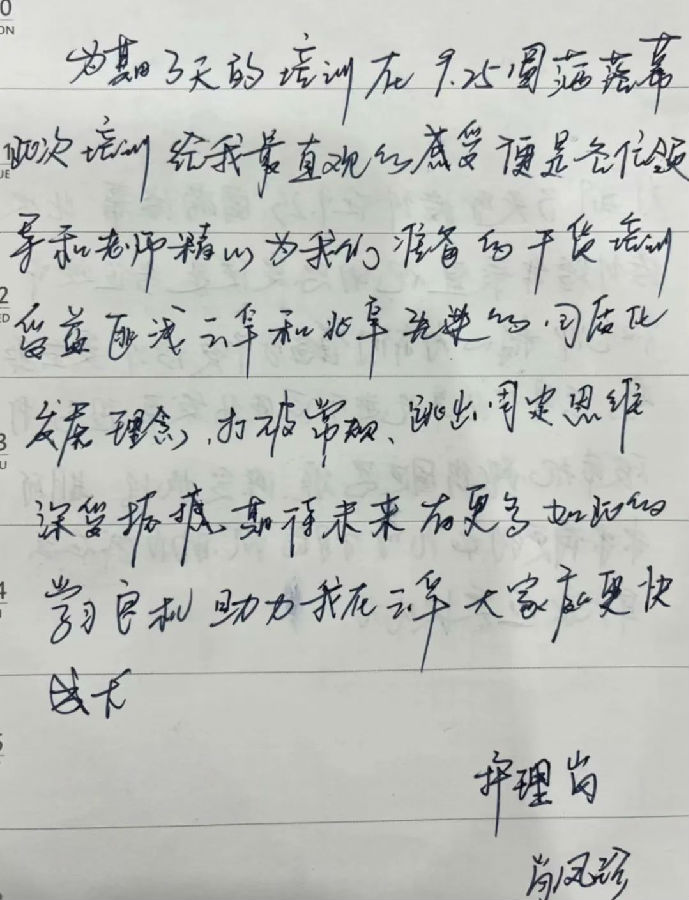 为期3天的培训在9.25圆满落幕
此次培训给我最直观的感受便是各位领
导和老师精心为我们准备的干货培训
受益匪浅云阜和北阜的同质化
发展理念,打破常规、跳出固定思维
深受振撼期待未来有更多如此的
学习良机助力我在云阜大家庭更快
成长
护理岗
肖凤珍